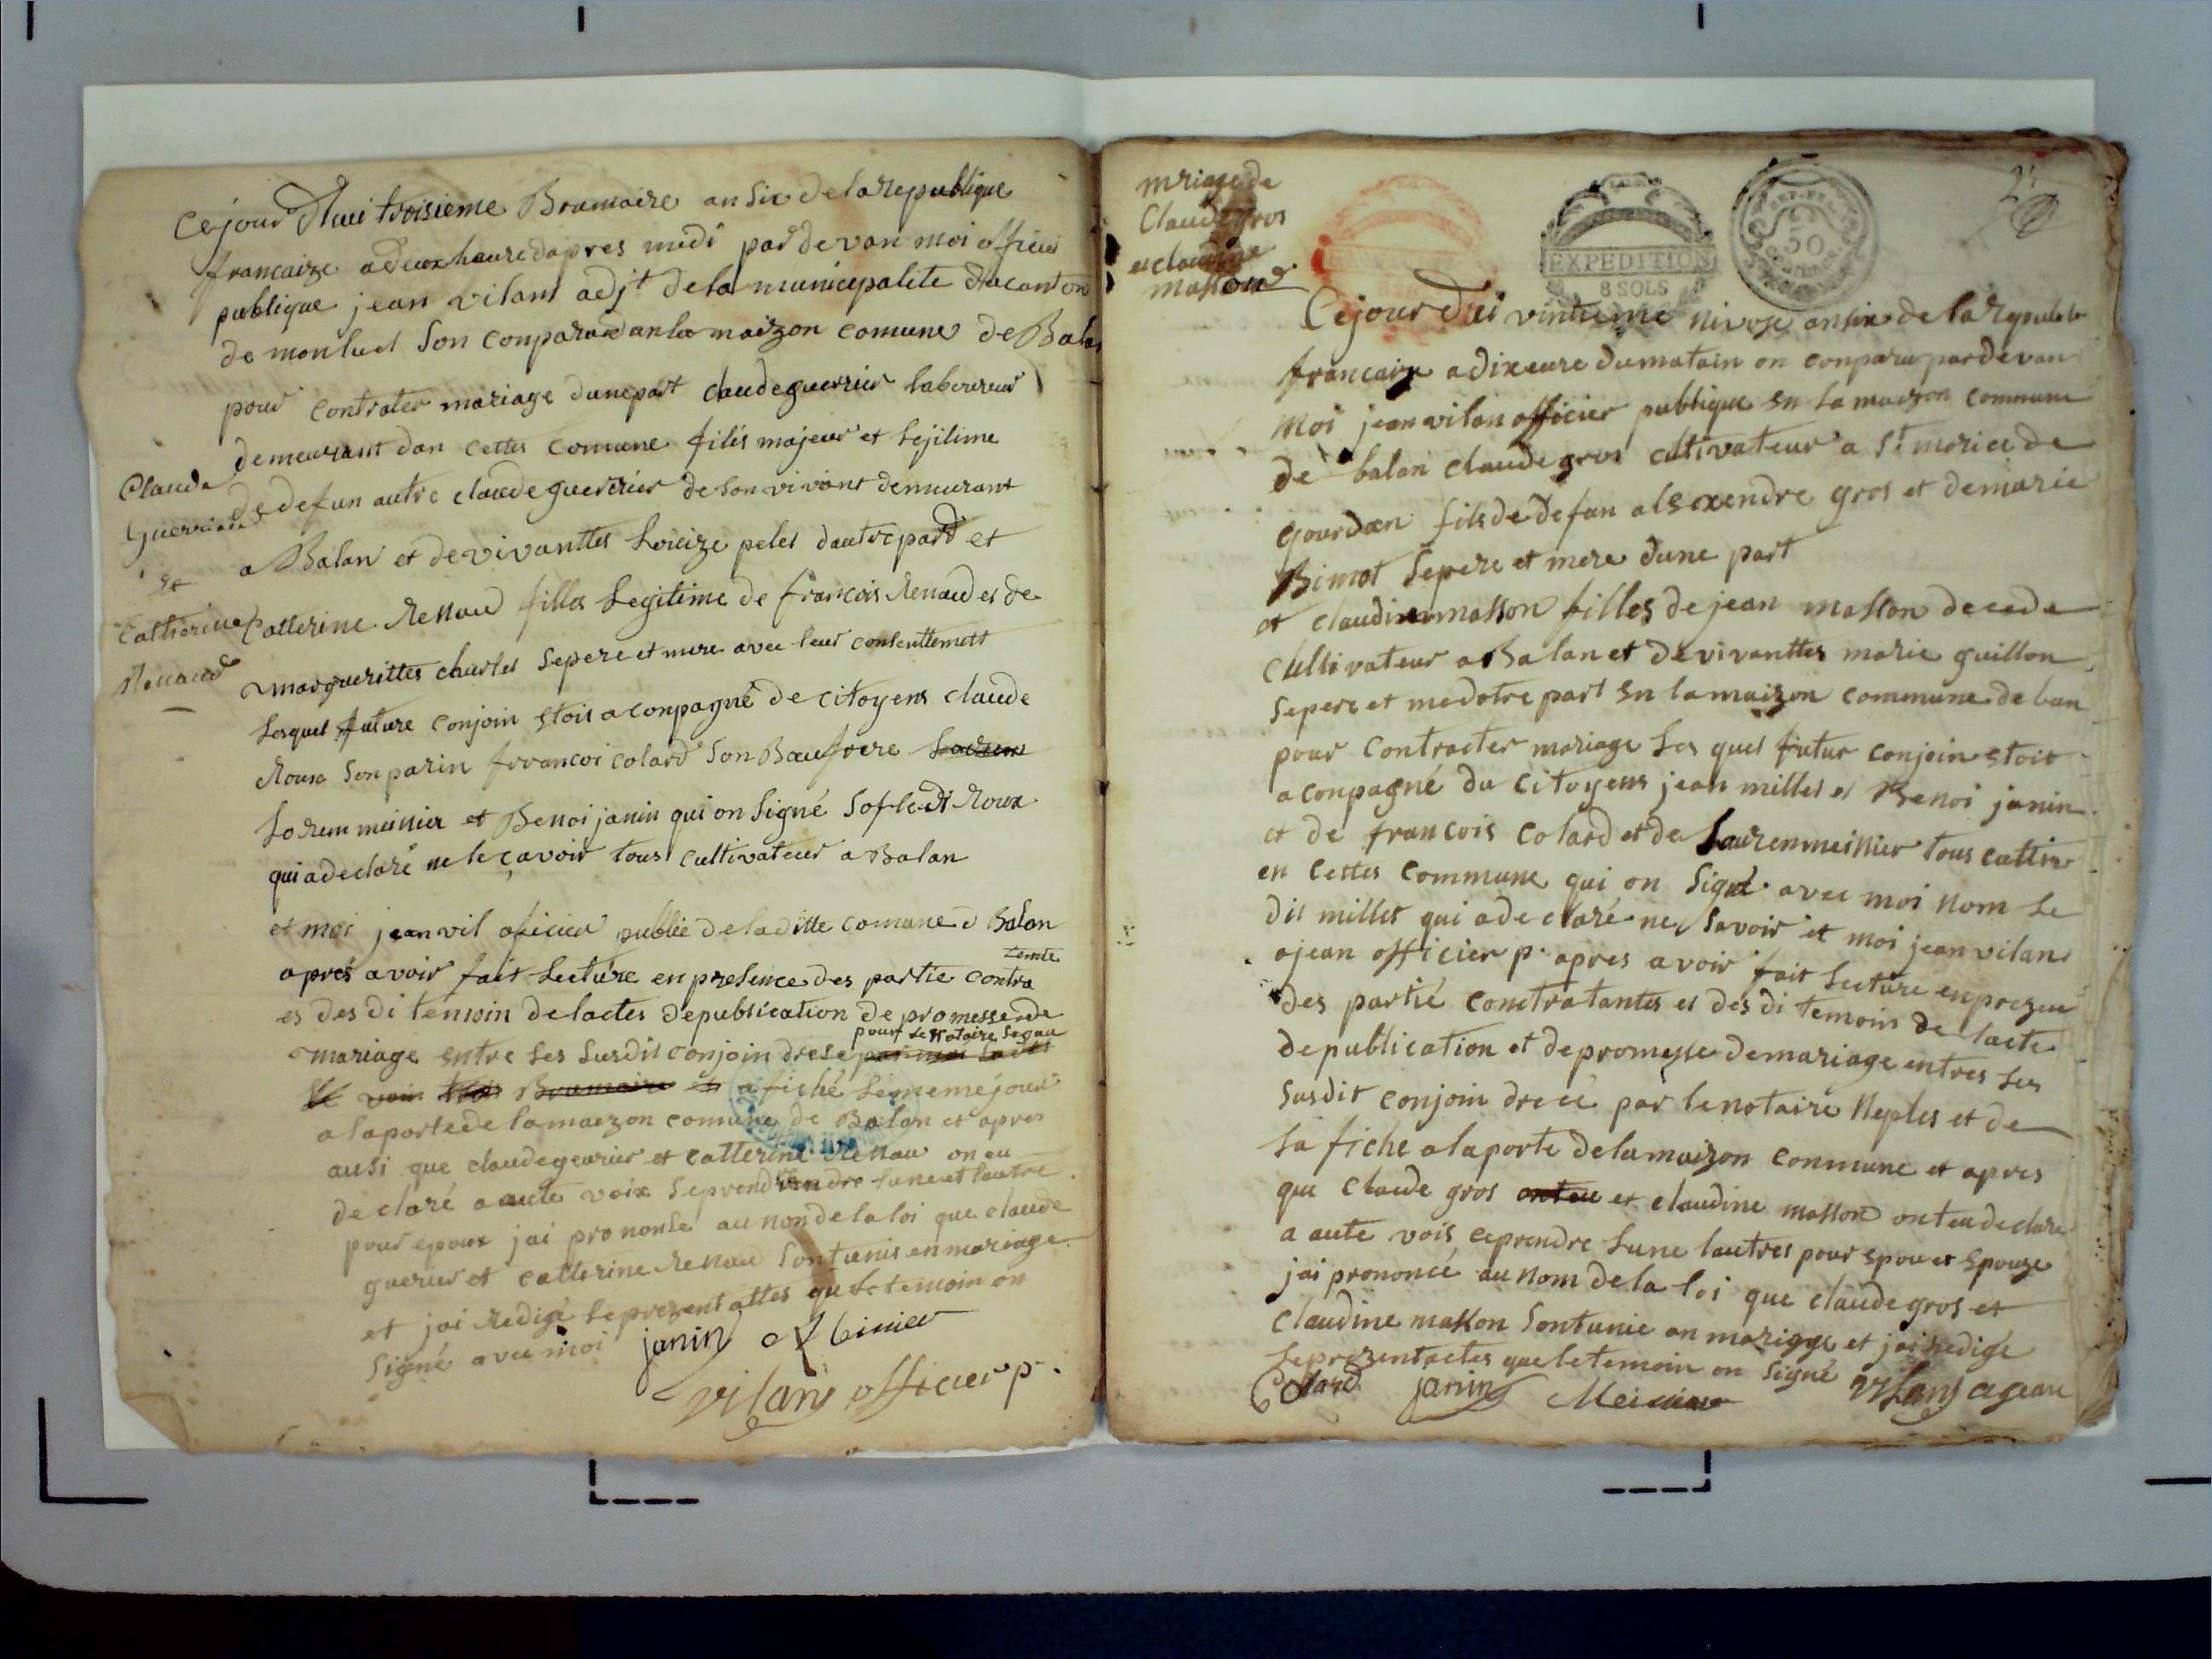 Claude
Guerriau
et
Catherine
Renaud
Cejour Dhui troisieme Brumaire an Six de la republique
francaize a deux heure dapres midi par devan moi officier
publique jean vilant adjt de la municipalite du canton
de monluel Son conparu dan la maizon comune de Balan
pour contrater mariage dune part claude guerrier laboureur
demeurant dan cettes comune filis majeur et lejitime
de defun autre claude guerrier de son vivant demeurant
a Balan et de vivanttes Louize peles dautre part et
Catterine Renau filles Legitime de francois Renaud et de
marguerittes charles Sepere et mere avec leur consenttement
Lesquel future conjoin etois aconpagné de citoyens claude
Roux Son parin francoi colard Son Baufrere
Lorem meinier et Benoi janin qui on Signé Sofledt Roux
qui a declaré ne leçavoir tous cultivateur a Balan
et moi jean vil oficier publie de laditte comune d Balan
apres avoir fait Lecture en presence des partie contra
es des di temoin de lactes depublication de promesse de
mariage entre les Susdit conjoin drese pour le Notaire Segau
Le voin Brumaire et afiché Le meme jour
a la porte de la maizon comune de Balan et apres
ausi que claude geurier et catterine Renau on eu
declaré a aute voix se prendre lune et lautre
pour epoux jai prononse au non de la loi que claude
guerier et catterine Renau Sont unis en mariage
et jai Redigé le prezent attes que le temoin on
Signé avec moi janin
vilans officier p.
mriage de
Claude gros
et claudine
masson
2
EXPEDITION
8 SOLS
REP. FRA.
50
Cejour Dui vintieme nivose an six de la Republi
francaize a dix eure du matain on conparu par devan
moi jean vilan officier publique en la maizon commune
de balan claude gros cultivateur a St morice de
gourdan fils de defun alsexendre gros et de marie
Bimot Sepere et mere dune part
et claudine masson filles de jean masson decede
cultivateur a Balan et de vivanttes marie guillon
sepere et me dotre part en la maizon commune de ban
pour contracter mariage Les quel futur conjoin etoit
aconpagné du citoyens jean millet et Benoi janin
et de francois colard et de Lauren meinier tous cultiv
en cettes commune qui on Signé avec moi nom le
dit millet qui a declaré ne Savoir et moi jean vilan
ajean officier p. apres avoir fait lecture en prezen
des partié contratantes et des di temoin de lacte
de publication et de promesse de mariage entres les
Susdit conjoin drecé par le notaire Neples et de
la fiche a la porte de la maizon conmune et apres
que claude gros onteu et claudine masson onteu declare
a aute vois ceprendre lune lautres pour epou et epouze
jai prononcé au nom de la loi que claude gros et
claudine masson Sont unie an mariage et jai redigé
le prezent actes que le temoin on Signé
Colard janin Meinier vilans ajean